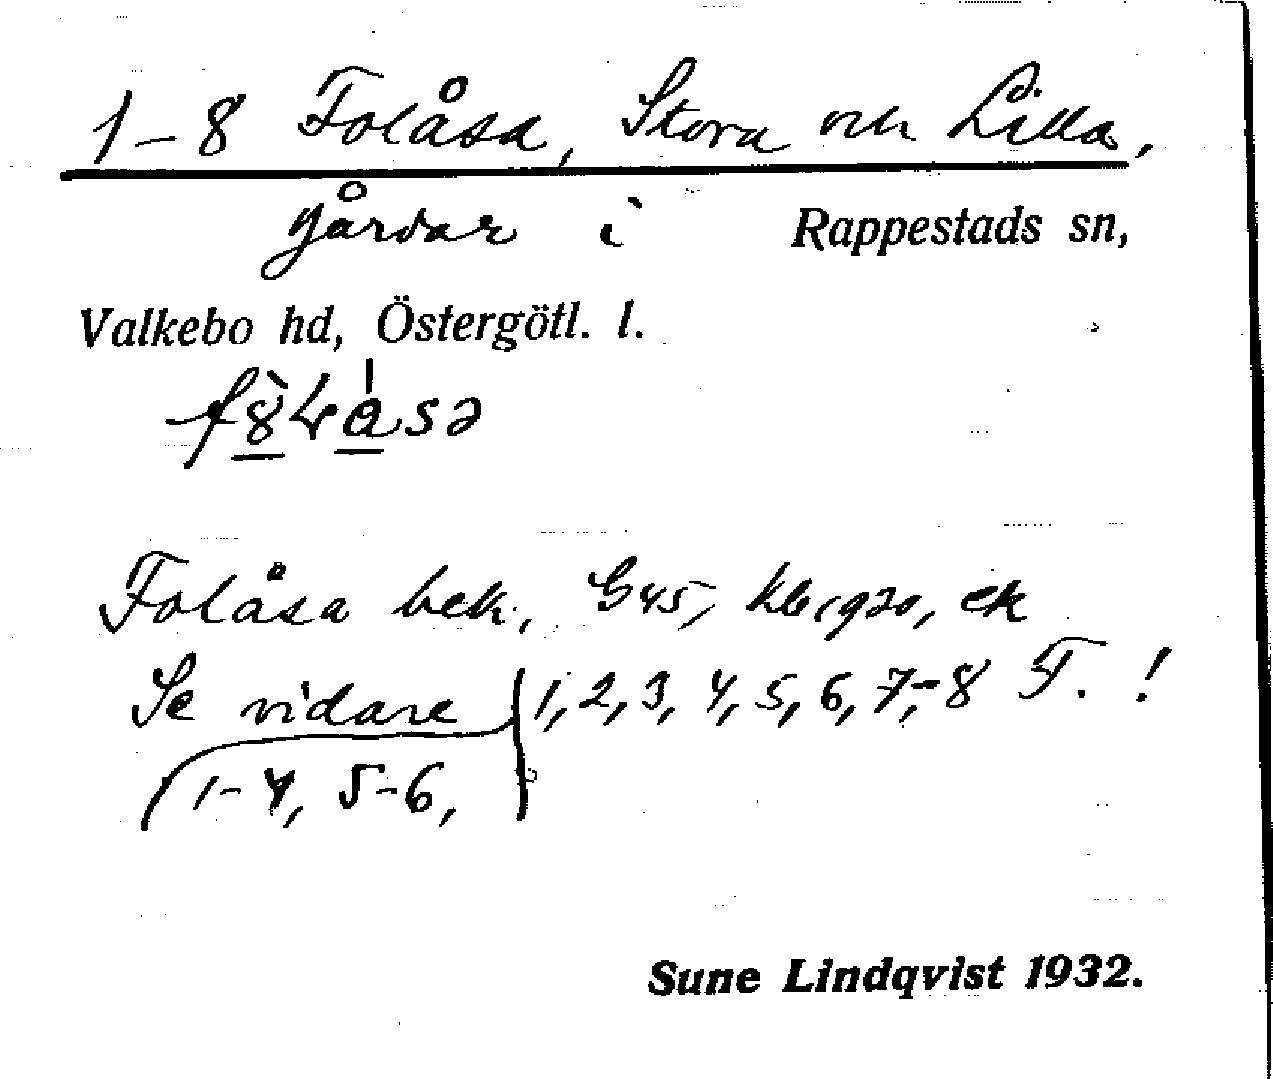 1-8 Folåsa, Stora och Lilla,
gårdar i Rappestads sn,
Valkebo hd, Östergötl. l.
Folåsa bek., G45, kb 1920, ek
Se vidare 1, 2, 3, 4, 5, 6, 7,-8 F. !
1-4, 5-6,
Sune Lindqvist 1932.